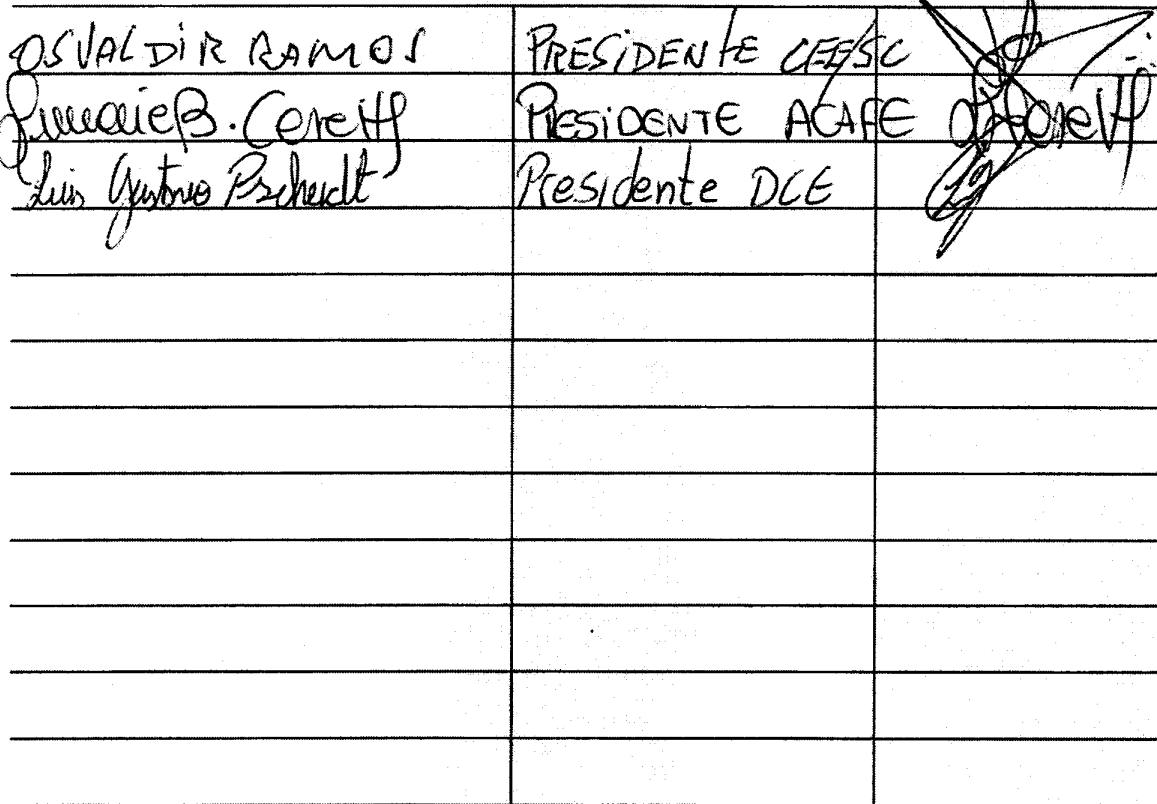 OSVALDIR RAMOS PRESIDENTE CEE/SC
B. Ceretta PRESIDENTE ACAFE
Luis Gustavo Pscheidt Presidente DCE